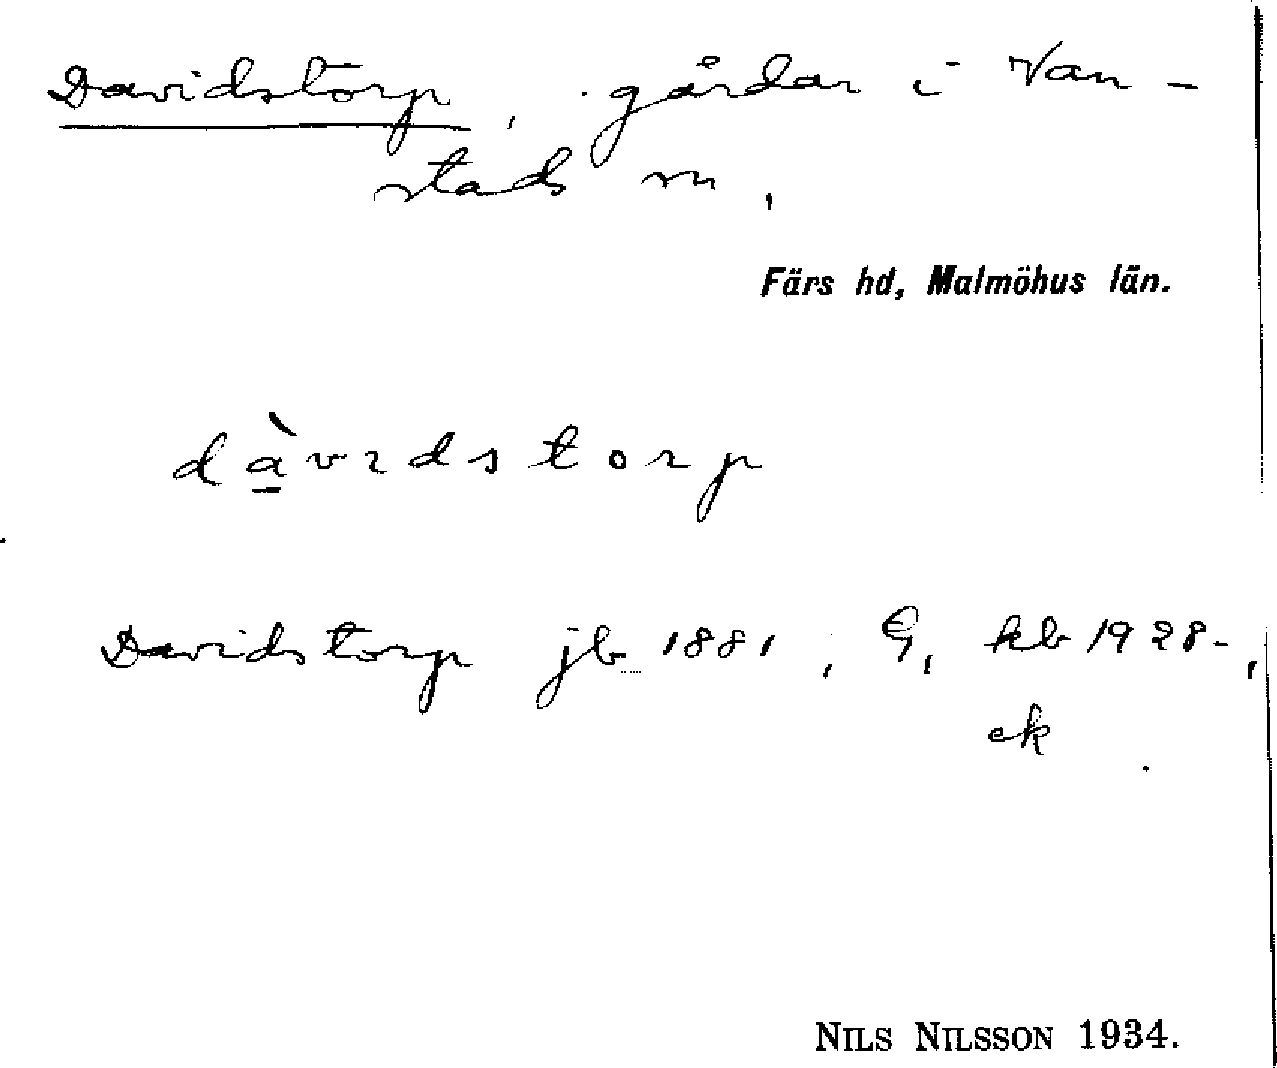 Davidstorp, gårdar i Van-
stads sn,
Färs hd, Malmöhus län.
dàvıdstorp
Davidstorp jb 1881, G, kb 1928-,
ek
NILS NILSSON 1934.